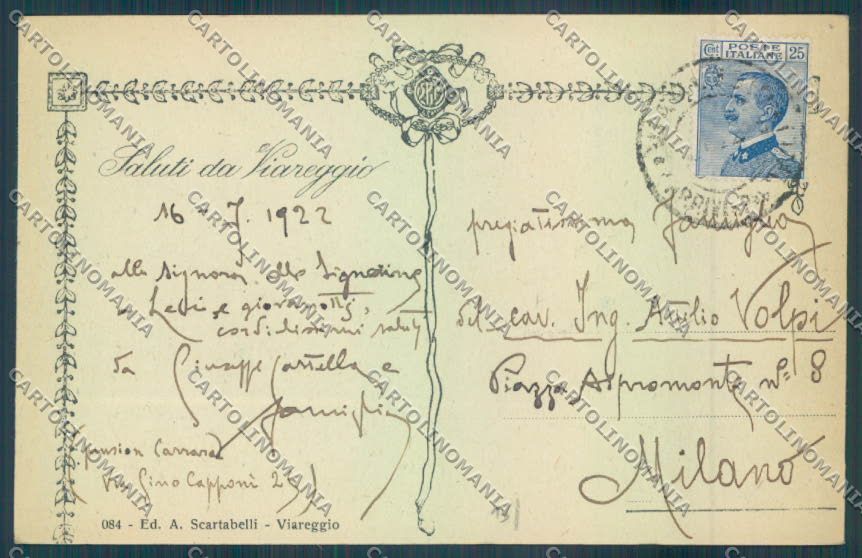 Cent. POSTE ITALIANE 25
Saluti da Viareggio
16 - 7. 1922
alla Signora, alle Signorine
Levi, e giovanotti,
cordialissimi saluti
da Giuseppe Castella e
famiglia
(pension Carrara
Via Gino Capponi 2
pregiatissima famiglia
del cav. Ing. Attilio Volpi
Piazza Aspromonte nº 8
Milano
084 - Ed. A. Scartabelli - Viareggio
CARTOLINOMANIA